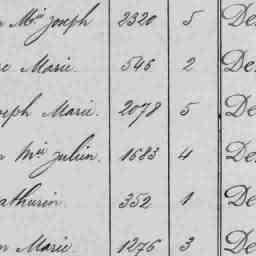 Mie Joseph 2320 5 De
Marie. 546 2 De
seph Marie. 2078 5 De
Mie Julien. 1683 4 De
athurin. 352 1 De
Marie 1276 3 De